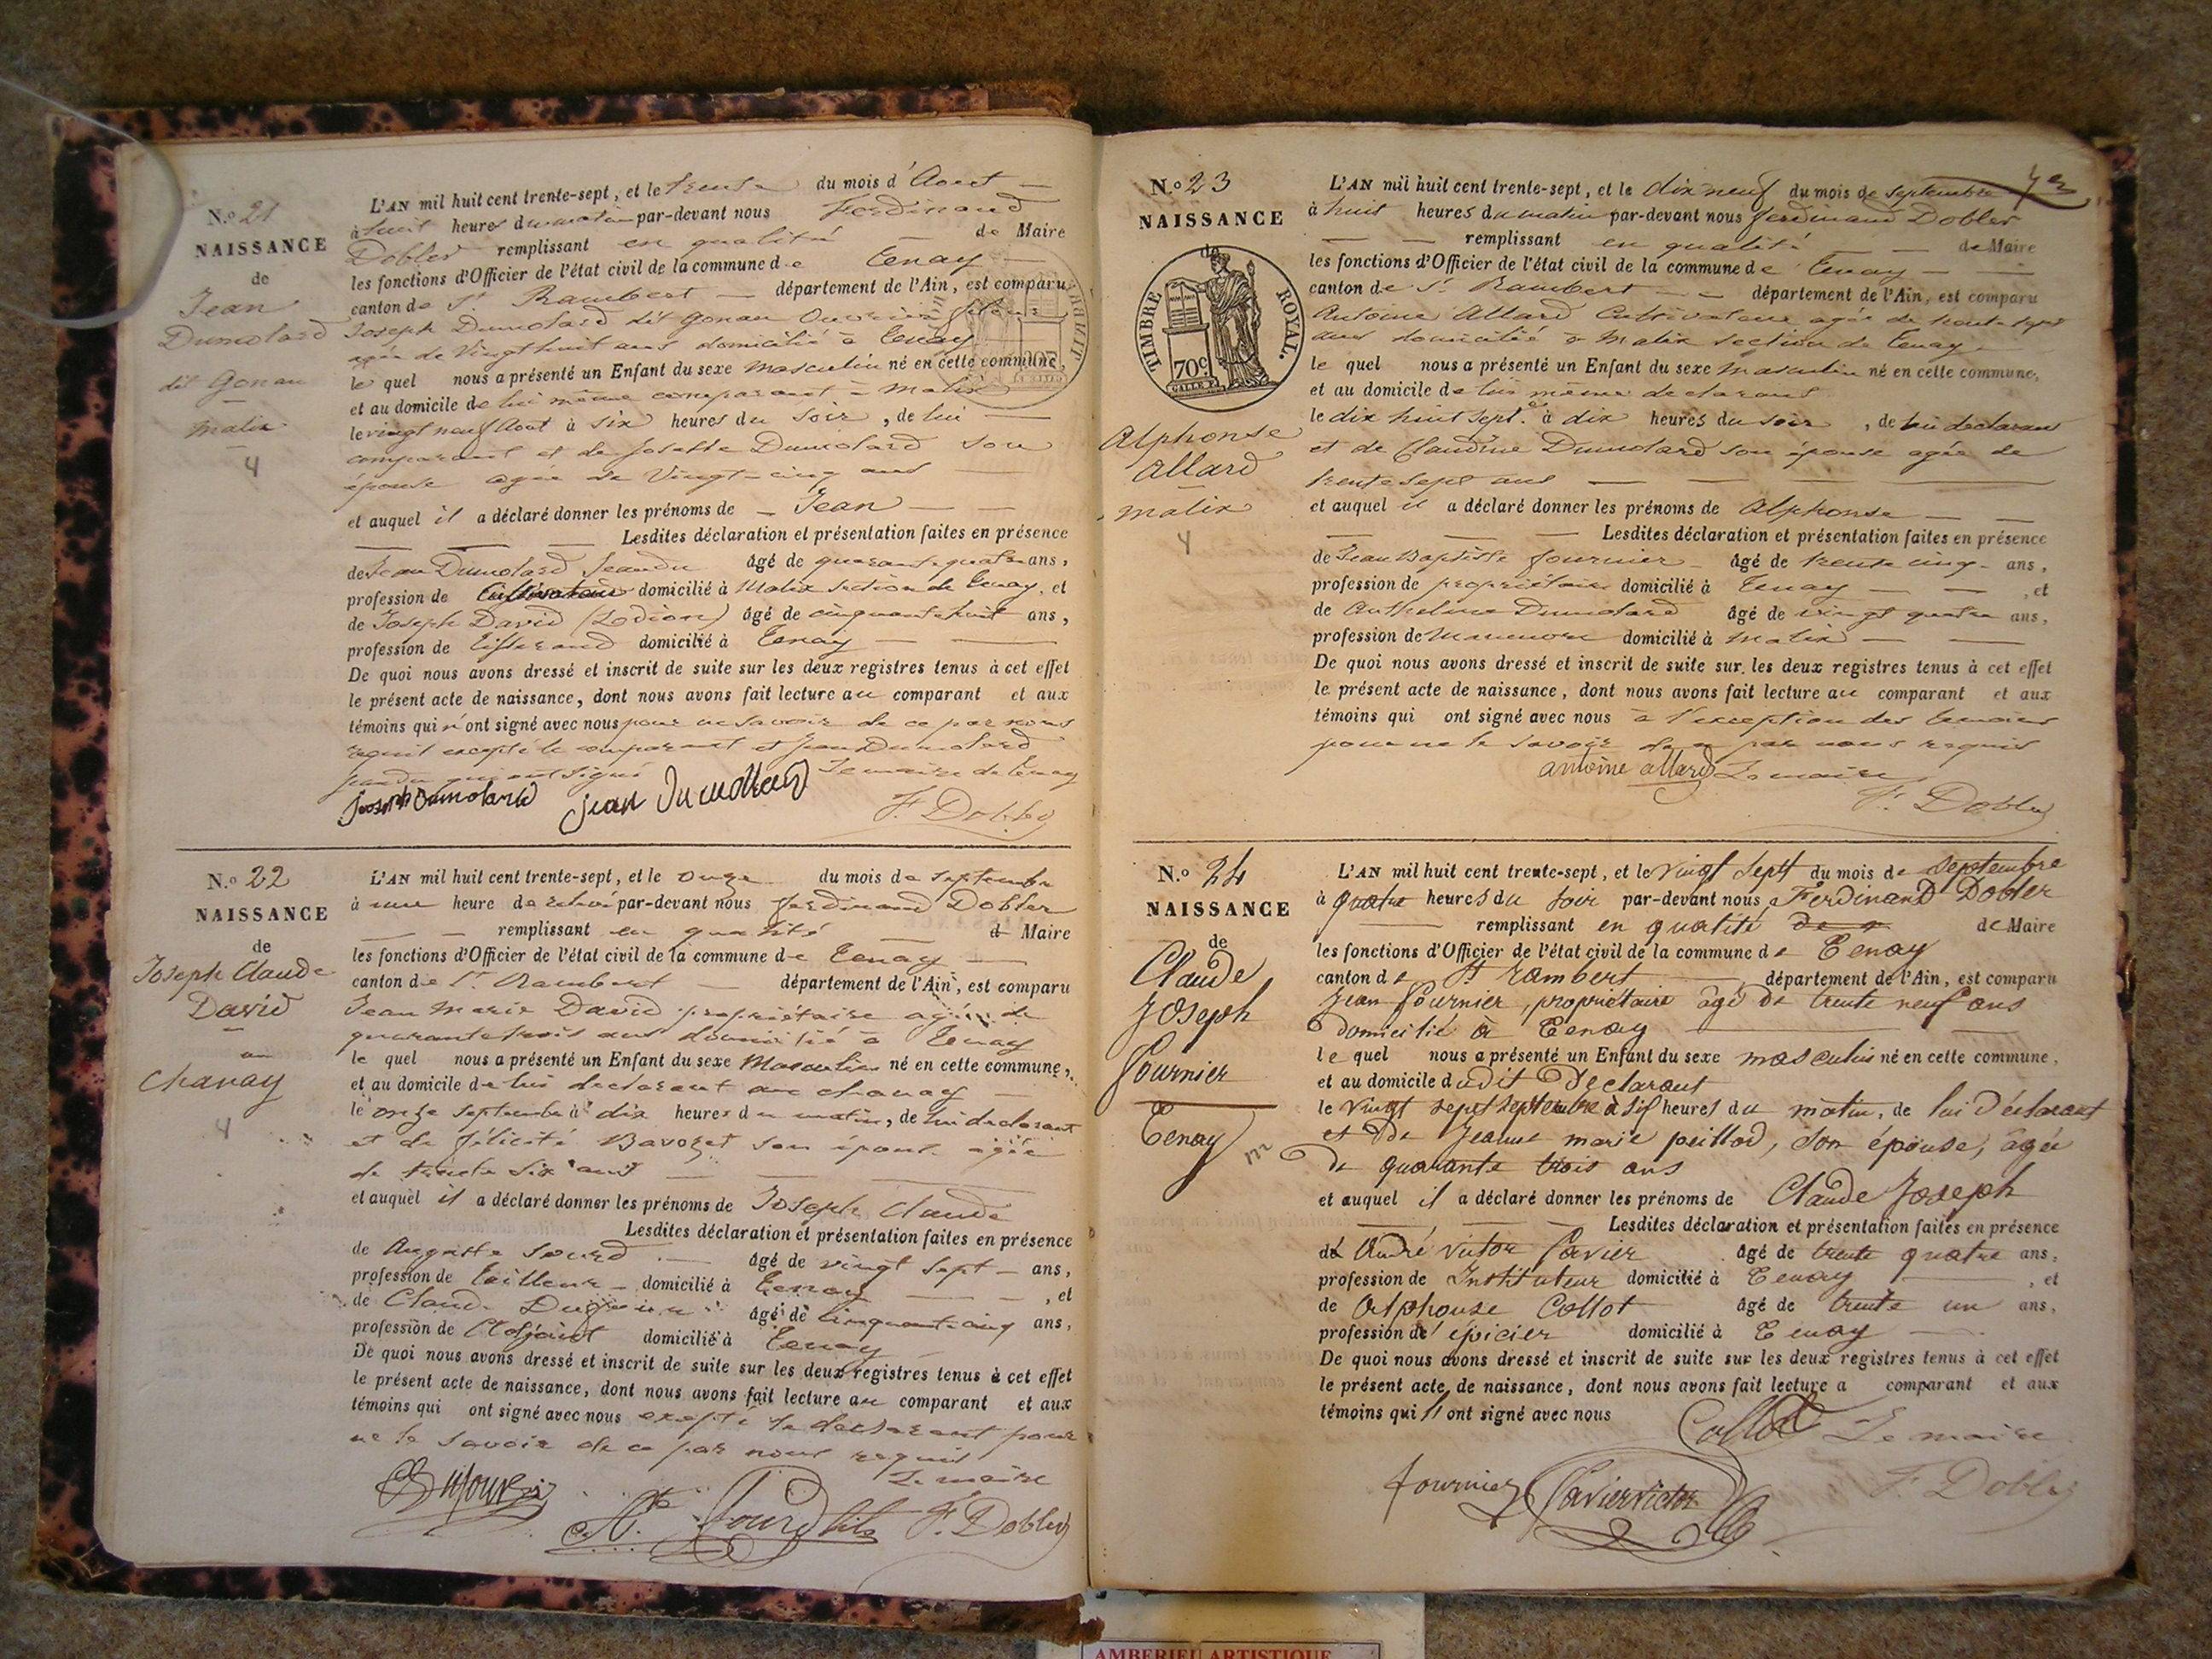 N.o 21
NAISSANCE
de
Jean
Dumolard
dit Gonan
Malix
4
L'AN mil huit cent trente-sept, et le trente du mois d'Aout
à huit heures du matin par-devant nous Ferdinand
Dobler remplissant en qualité de Maire
les fonctions d'Officier de l'état civil de la commune de Tenay
canton de St Rambert département de l'Ain, est comparu
Joseph Dumolard dit Gonan Ouvrier fileur
agée de Vingt huit ans domicilié à Tenay
le quel nous a présenté un Enfant du sexe Masculin né en cette commune,
et au domicile de lui même comparant à Malix
le vingt neuf Aout à six heures du soir, de lui
comparant et de Josette Dumolard son
épouse agée de Vingt-cinq ans
et auquel il a déclaré donner les prénoms de Jean
Lesdites déclaration et présentation faites en présence
de Jean Dumolard Jeandu âgé de quarante quatre ans,
profession de Cultivateur domicilié à Malix section de Tenay, et
de Joseph David (Lodion) âgé de cinquante huit ans,
profession de Tisserand domicilié à Tenay
De quoi nous avons dressé et inscrit de suite sur les deux registres tenus à cet effet
le présent acte de naissance, dont nous avons fait lecture au comparant et aux
témoins qui n'ont signé avec nous pour ne savoir de ce par nous
requit excepté le comparant et Jean Dumolard
jeandu qui ont signé Le maire de Tenay
Joseph Dumolard Jean Dumollard F. Dobler
N.o 22
NAISSANCE
de
Joseph Claude
David
au
Chanay
4
L'AN mil huit cent trente-sept, et le onze du mois de septembre
à une heure de relevé par-devant nous Ferdinand Dobler
remplissant en qualité de Maire
les fonctions d'Officier de l'état civil de la commune de Tenay
canton de St Rambert département de l'Ain, est comparu
Jean Marie David propriétaire agée de
quarante trois ans domicilié à Tenay
le quel nous a présenté un Enfant du sexe Masculin né en cette commune,
et au domicile de lui declarant au chanay
le onze septembre à dix heures du matin, de lui declarant
et de félicité Bavozet son épouse agée
de trente six ans
et auquel il a déclaré donner les prénoms de Joseph Claude
Lesdites déclaration et présentation faites en présence
de Auguste Sourd âgé de vingt sept ans,
profession de tailleur domicilié à Tenay, et
de Claude âgé de cinquante cinq ans,
profession de domicilié à Tenay
De quoi nous avons dressé et inscrit de suite sur les deux registres tenus à cet effet
le présent acte de naissance, dont nous avons fait lecture au comparant et aux
témoins qui ont signé avec nous excepté le declarant pour
ne le savoir de ce par nous requit
Le maire
Ate Sourd fils F. Dobler
72
N.o 23
NAISSANCE
de
TIMBRE ROYAL.
70c
Alphonse
Allard
Malix
4
L'AN mil huit cent trente-sept, et le dix neuf du mois de septembre
à huit heures du matin par-devant nous ferdinand Dobler
remplissant en qualité de Maire
les fonctions d'Officier de l'état civil de la commune de Tenay
canton de St Rambert département de l'Ain, est comparu
Antoine Allard Cultivateur agée de trente sept
ans domicilié à Malix section de Tenay
le quel nous a présenté un Enfant du sexe Masculin né en cette commune,
et au domicile de lui même declarant
le dix huit septe à dix heures du soir, de lui declarant
et de Claudine Dumolard son épouse agée de
trente sept ans
et auquel il a déclaré donner les prénoms de Alphonse
Lesdites déclaration et présentation faites en présence
de Jean Baptiste fournier âgé de trente cinq ans,
profession de propriétaire domicilié à Tenay, et
de Anthelme Dumolard âgé de vingt quatre ans,
profession de domicilié à Malix
De quoi nous avons dressé et inscrit de suite sur les deux registres tenus à cet effet
le présent acte de naissance, dont nous avons fait lecture au comparant et aux
témoins qui ont signé avec nous à l'exception des temoins
pour ne le savoir de ce par nous requis
antoine allard Le maire
F. Dobler
N.o 24
NAISSANCE
de
Claude
Joseph
Fournier
Tenay
m
L'AN mil huit cent trente-sept, et le vingt sept du mois de septembre
à quatre heures du soir par-devant nous Ferdinand Dobler
remplissant en qualité de Maire
les fonctions d'Officier de l'état civil de la commune de Tenay
canton de St Rambert département de l'Ain, est comparu
Jean Fournier, propriétaire âgé de trente neuf ans
domicilié à Tenay
le quel nous a présenté un Enfant du sexe masculin né en cette commune,
et au domicile dudit Déclarant
le vingt sept septembre à six heures du matin, de lui Déclarant
et de Jeanne marie peillod, son épouse, âgée
de quarante trois ans
et auquel il a déclaré donner les prénoms de Claude Joseph
Lesdites déclaration et présentation faites en présence
de André Victor Cavier âgé de trente quatre ans,
profession de Instituteur domicilié à Tenay, et
de Alphonse Collot âgé de trente un ans,
profession de épicier domicilié à Tenay
De quoi nous avons dressé et inscrit de suite sur les deux registres tenus à cet effet
le présent acte de naissance, dont nous avons fait lecture a comparant et aux
témoins qui ont signé avec nous
Collot Le maire
fournier Cavier victor F. Dobler
AMBERIEU ARTISTIQUE